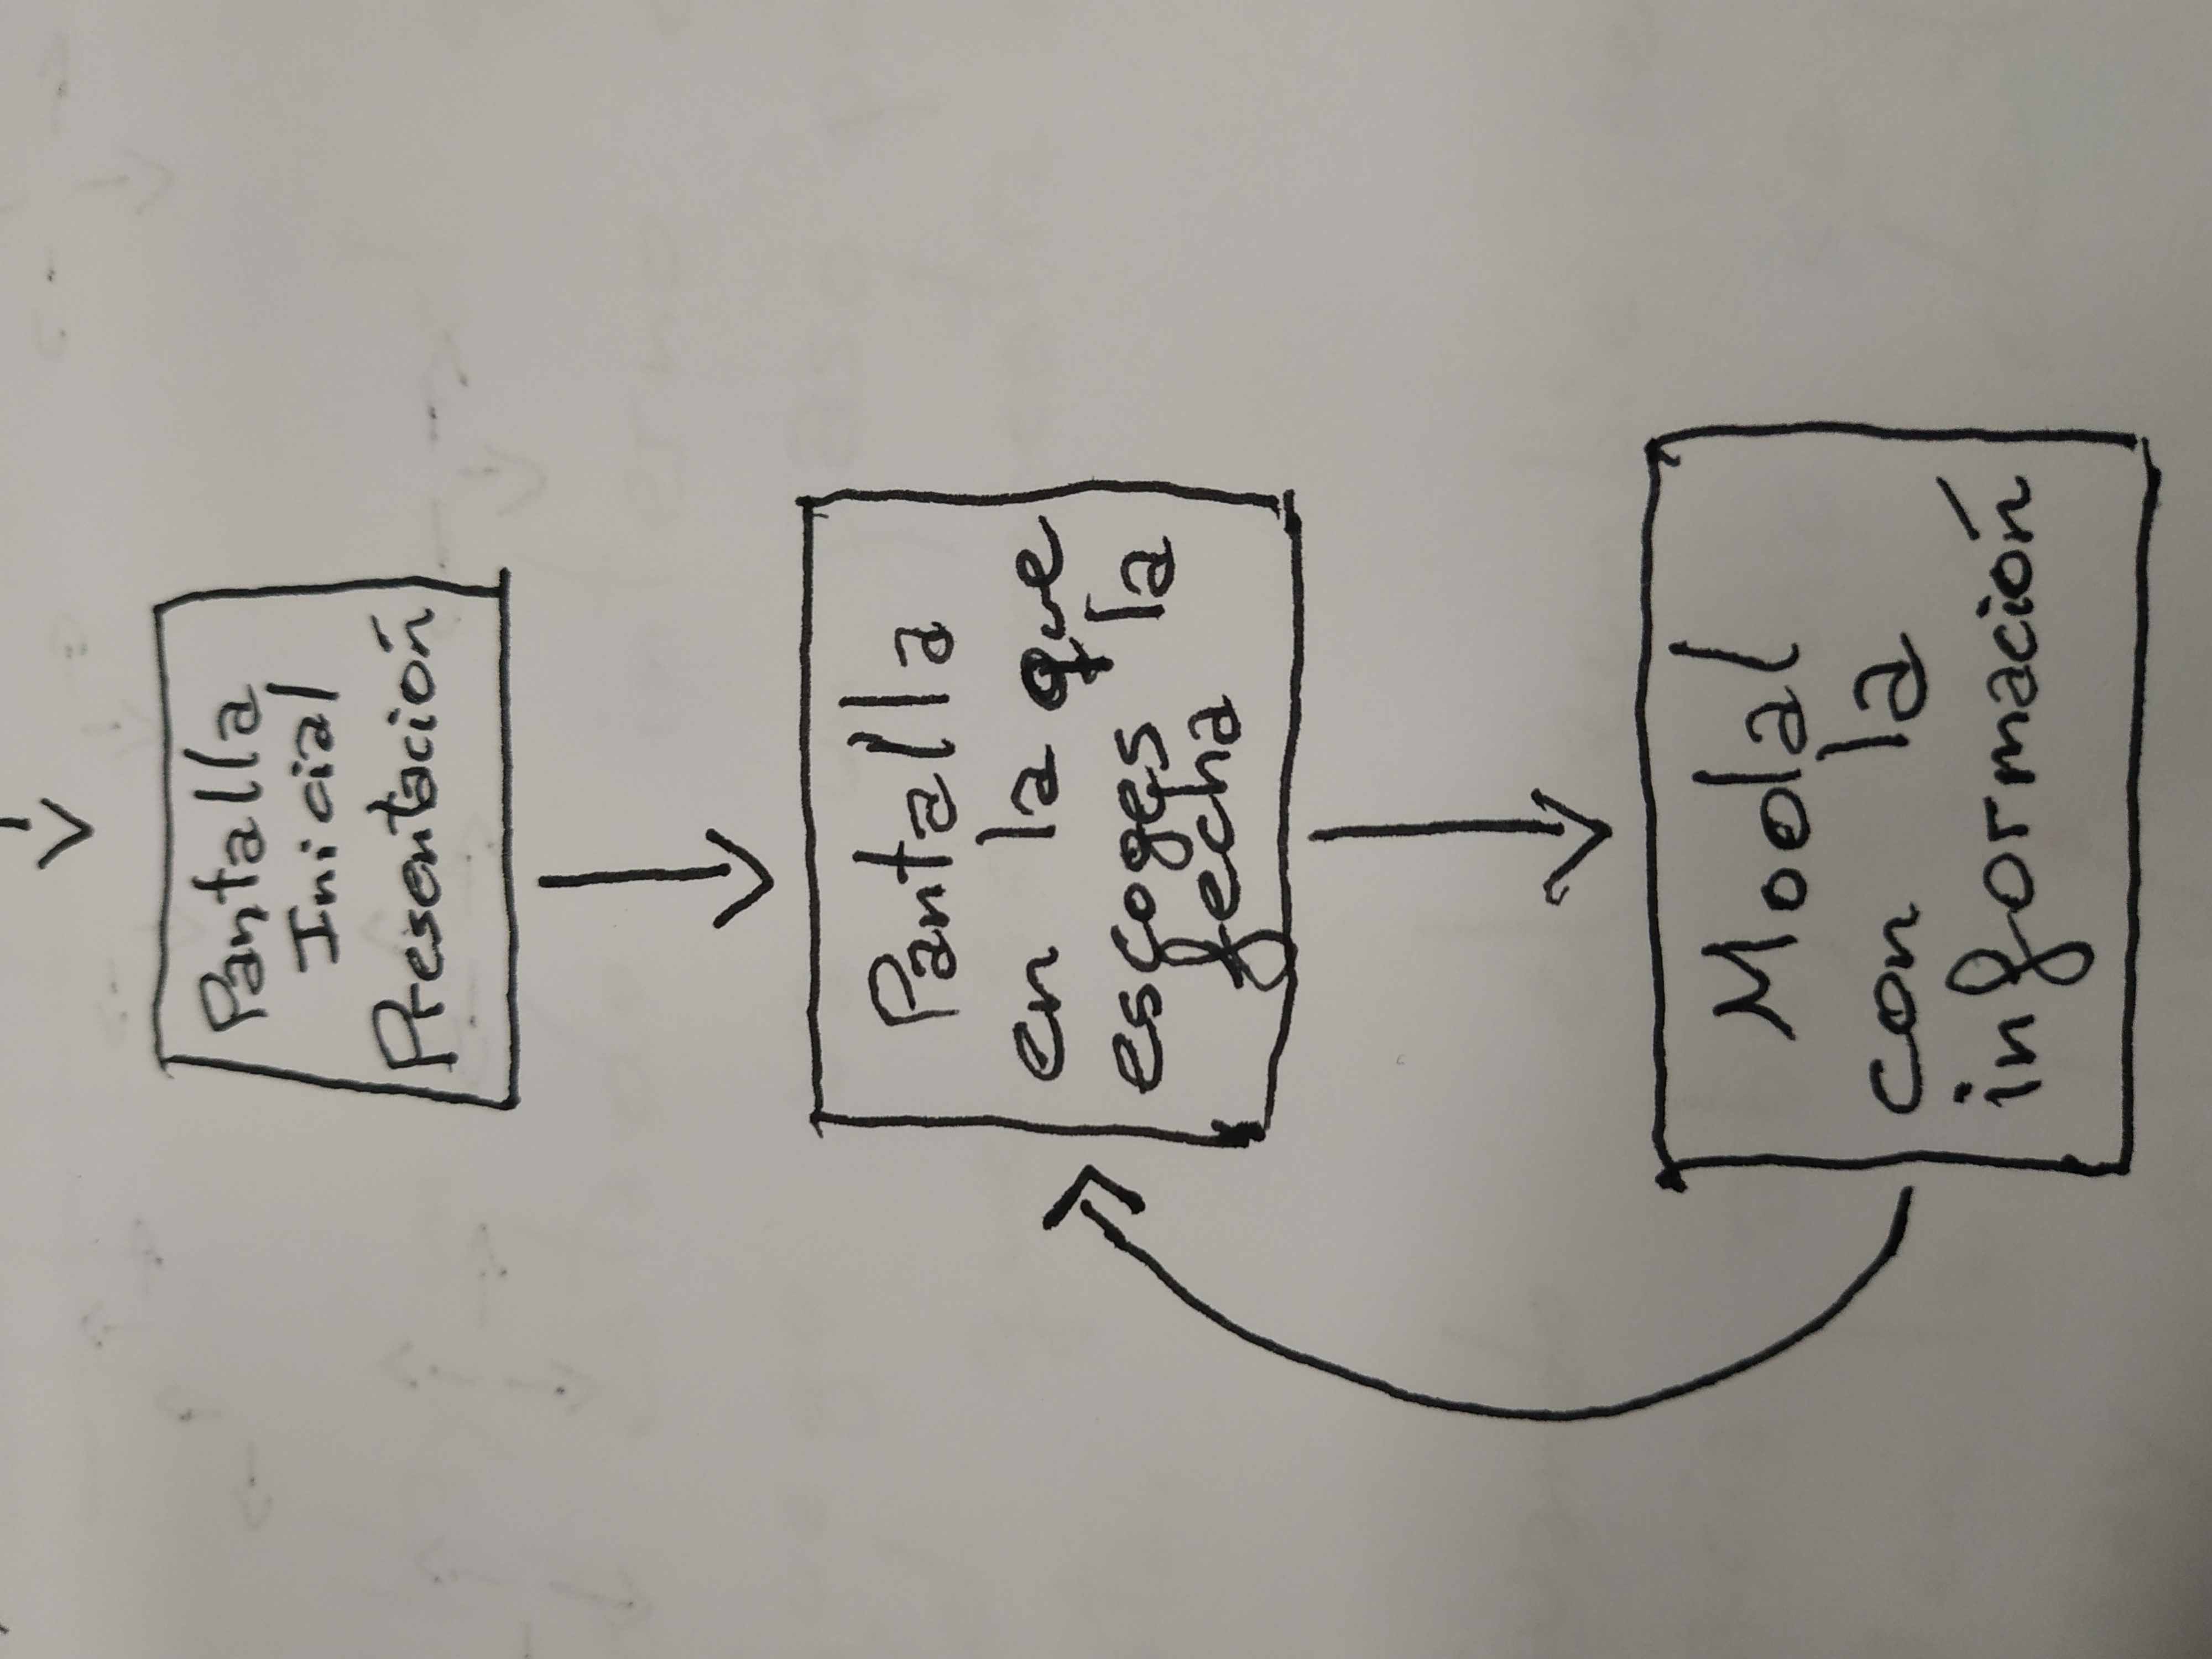 Pantalla
Inicial
Presentación
Pantalla
en la que
escoges la
fecha
Modal
con la
información